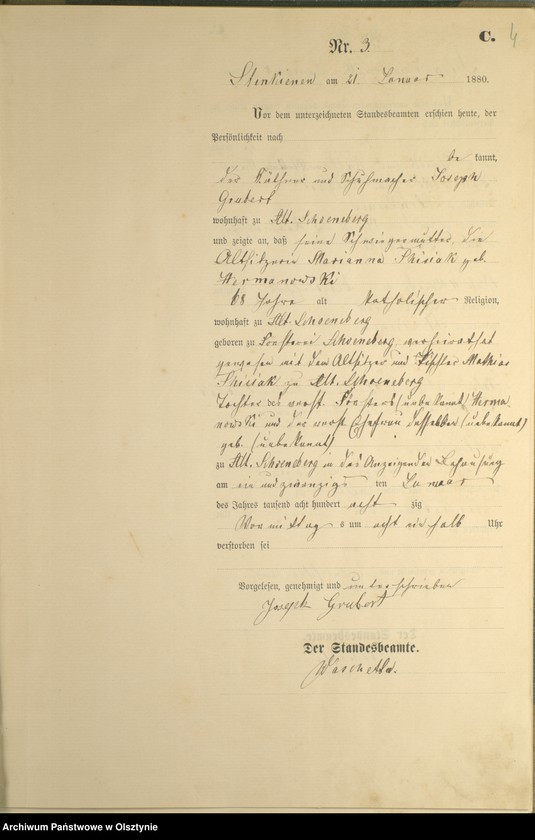 C. 4
Nr. 3.
Stenkienen am 21. Januar 1880.
Vor dem unterzeichneten Standesbeamten erschien heute, der
Persönlichkeit nach
be kannt,
der Käthner und Schuhmacher Joseph
Grabert
wohnhaft zu Alt. Schoeneberg
und zeigte an, daß seine Schwiegermutter, die
Altsitzerin Marianna Skisiak geb.
Hermanowski
68 Jahre alt katholischer Religion,
wohnhaft zu Alt. Schoeneberg
geboren zu Försterei Schoeneberg, verheirathet
gewesen mit dem Altsitzer und Tischler Mathias
Skisiak zu Alt. Schoeneberg
Tochter des verst. Försters (unbekannt) Herma
nowski und der verst. Ehefrau desselben (unbekannt)
geb. (unbekannt)
zu Alt. Schoeneberg in des Anzeigenden Behausung
am ein und zwanzigs ten Januar
des Jahres tausend acht hundert acht zig
Vormittags um acht ein halb Uhr
verstorben sei
Vorgelesen, genehmigt und unterschrieben
Joseph Grabert
Der Standesbeamte.
Archiwum Państwowe w Olsztynie